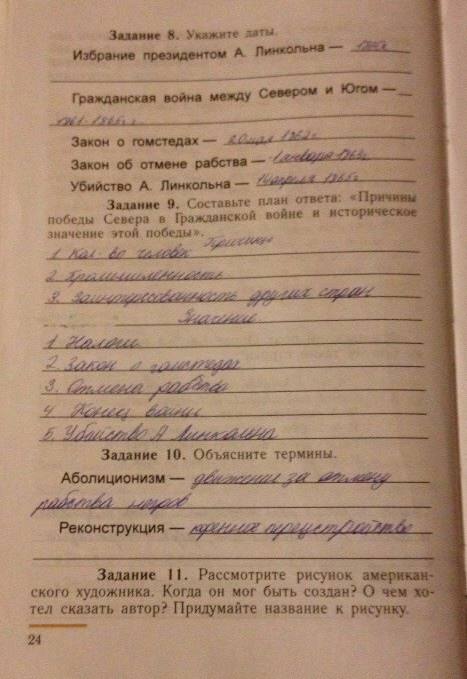 Задание 8. Укажите даты.
Избрание президентом А. Линкольна — 1860г
Гражданская война между Севером и Югом —
1861-1865г.г.
Закон о гомстедах — 20 мая 1862г
Закон об отмене рабства — 1 января 1863г
Убийство А. Линкольна — 14 апреля 1865г.
Задание 9. Составьте план ответа: «Причины
победы Севера в Гражданской войне и историческое
значение этой победы».
Причины
1 Кол-во человек
2 Промышленность
3. Заинтересованность других стран
Значение
1 Налоги
2 Закон о гомстедах
3. Отмена рабства
4 Конец войны
5. Убийство А Линкольна
Задание 10. Объясните термины.
Аболиционизм — движение за отмену
рабства негров
Реконструкция — коренное переустройство
Задание 11. Рассмотрите рисунок американ-
ского художника. Когда он мог быть создан? О чем хо-
тел сказать автор? Придумайте название к рисунку.
24